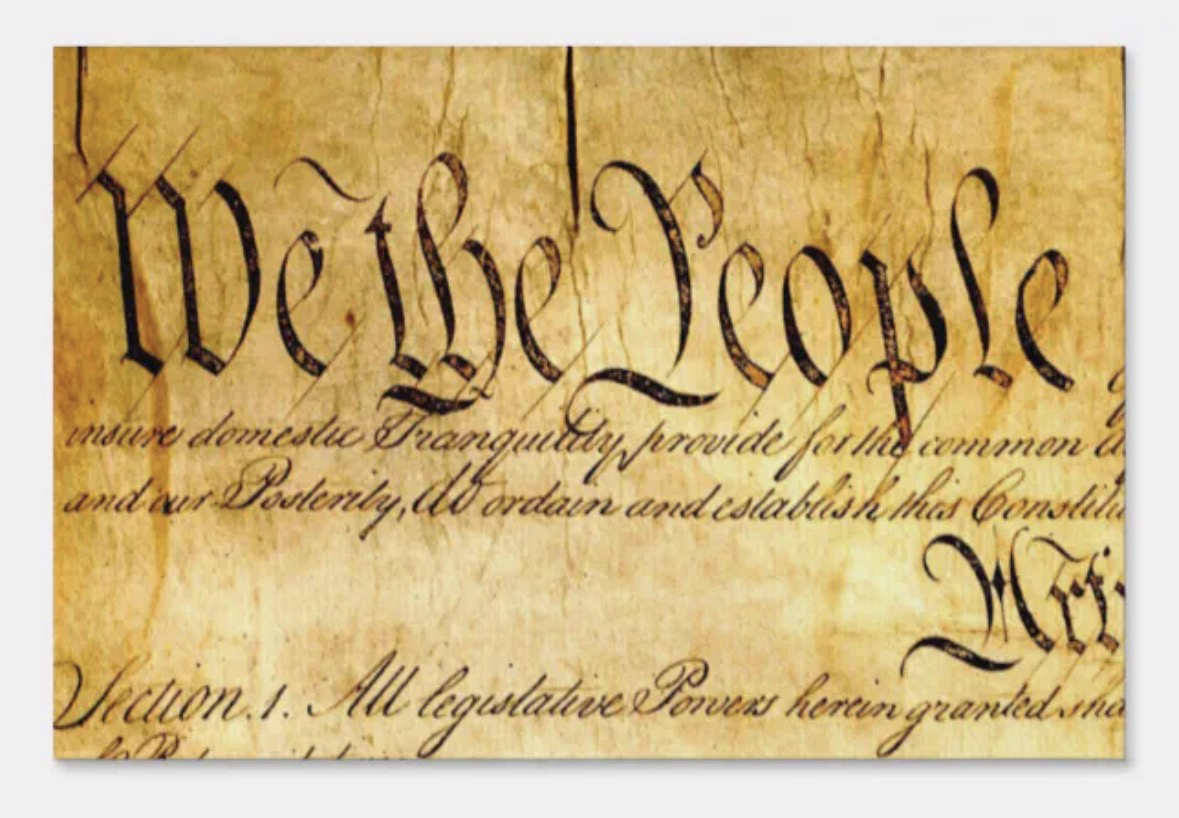 We the People
insure domestic Tranquility, provide for the common
and our Posterity, do ordain and establish this
Section. 1. All legislative Powers herein granted